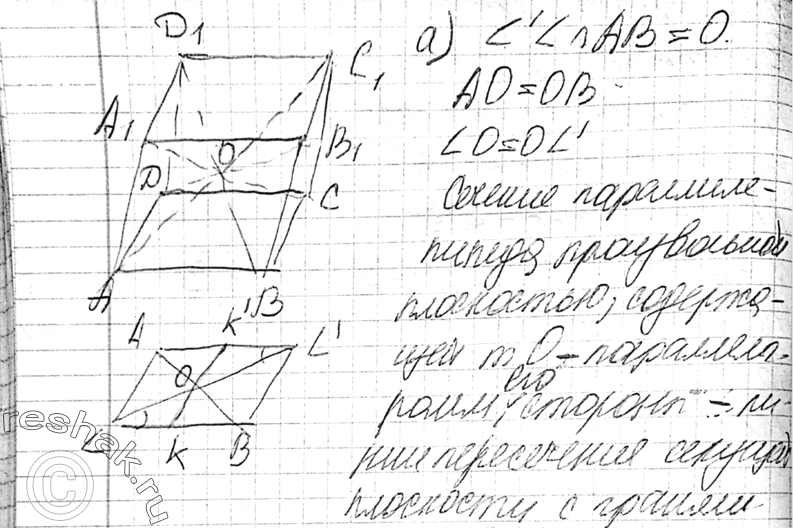 D₁
C₁
A₁
B₁
O
D
C
A
B
A
K'
L'
O
L
K
B
а) L'L∩AB=O.
AO=OB
LO=OL'
Сечение параллиле-
пипеда произвольной
плоскостью, содержа-
щей т.O – параллело-
грамм, его стороны – ли-
нии пересечения секущей
плоскости с гранями
© reshak.ru